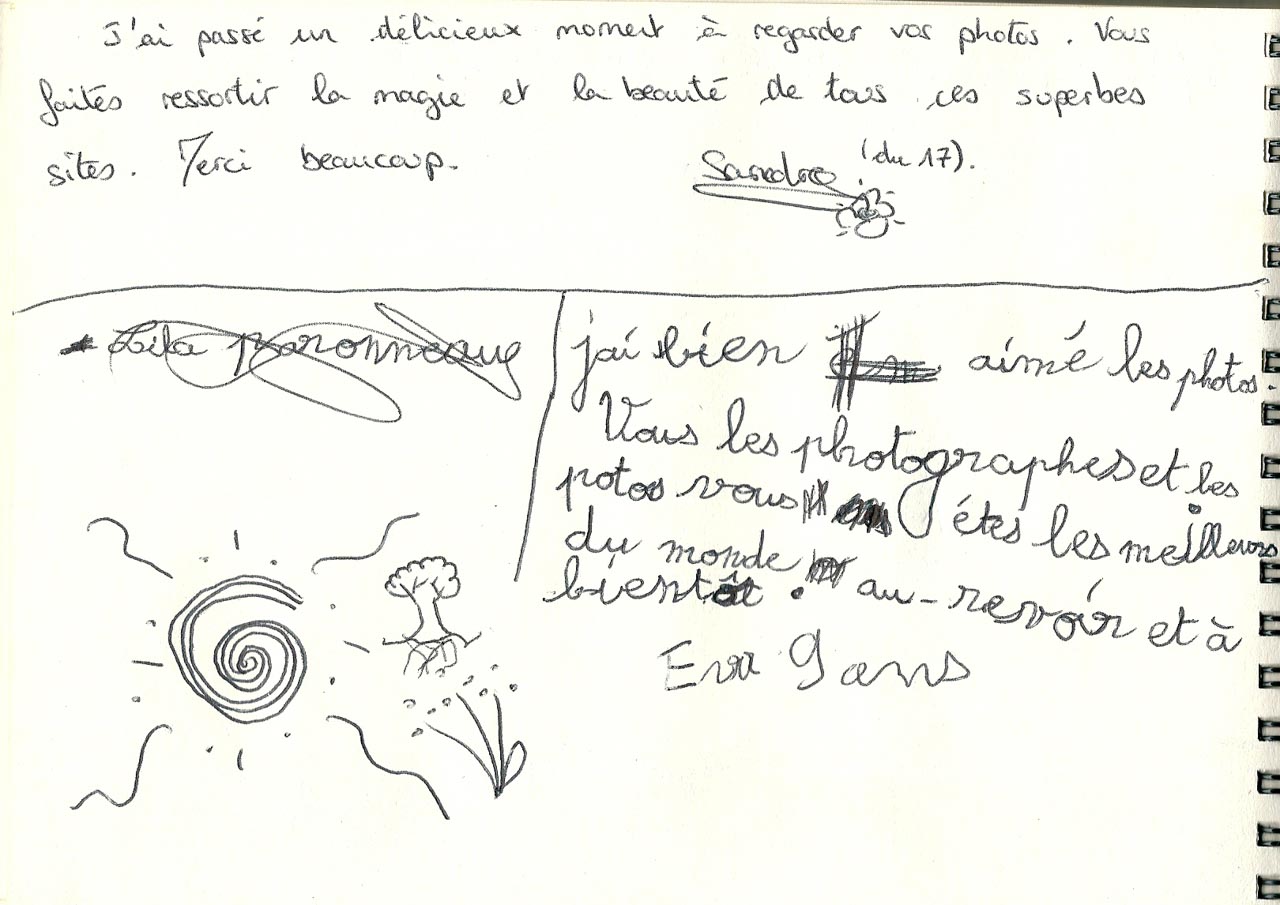 J'ai passé un délicieux moment à regarder vos photos. Vous
faîtes ressortir la magie et la beauté de tous ces superbes
sites. Merci beaucoup.
Sandra (du 17).
Lila
j'ai bien aimé les photos.
Vous les photographes et les
potos vous étes les meilleurs
du monde au-revoir et à
bientôt.
Eva 9 ans